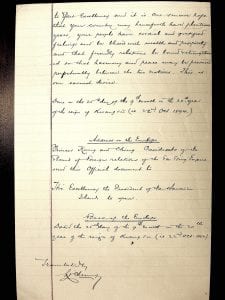 to Your Excellency and it is our sincere hope
that your country may henceforth have plenteous
years, your people have cordial and grateful
feelings and be blessed with wealth and prosperity
and that friendly relations be
so that harmony and peace may be preserved
perpetually between the two Nations. This is
our earnest desire.
Given on the 25th day of the 9th month in the 20th year
of the reign of Kwang Su (ie 23rd Oct 1894).
Address on the Envelope
Princes Kung and Ching Presidents of the
Board of Foreign relations of the Ta Tsing Empire
send this Official document to
His Excellency the President of the Hawaiian
Islands to open.
Reverse of the Envelope
Dated the 25th day of the 9th month in the 20th
year of the reign of Kwang Su (ie 23rd Oct 1894)
Translated by